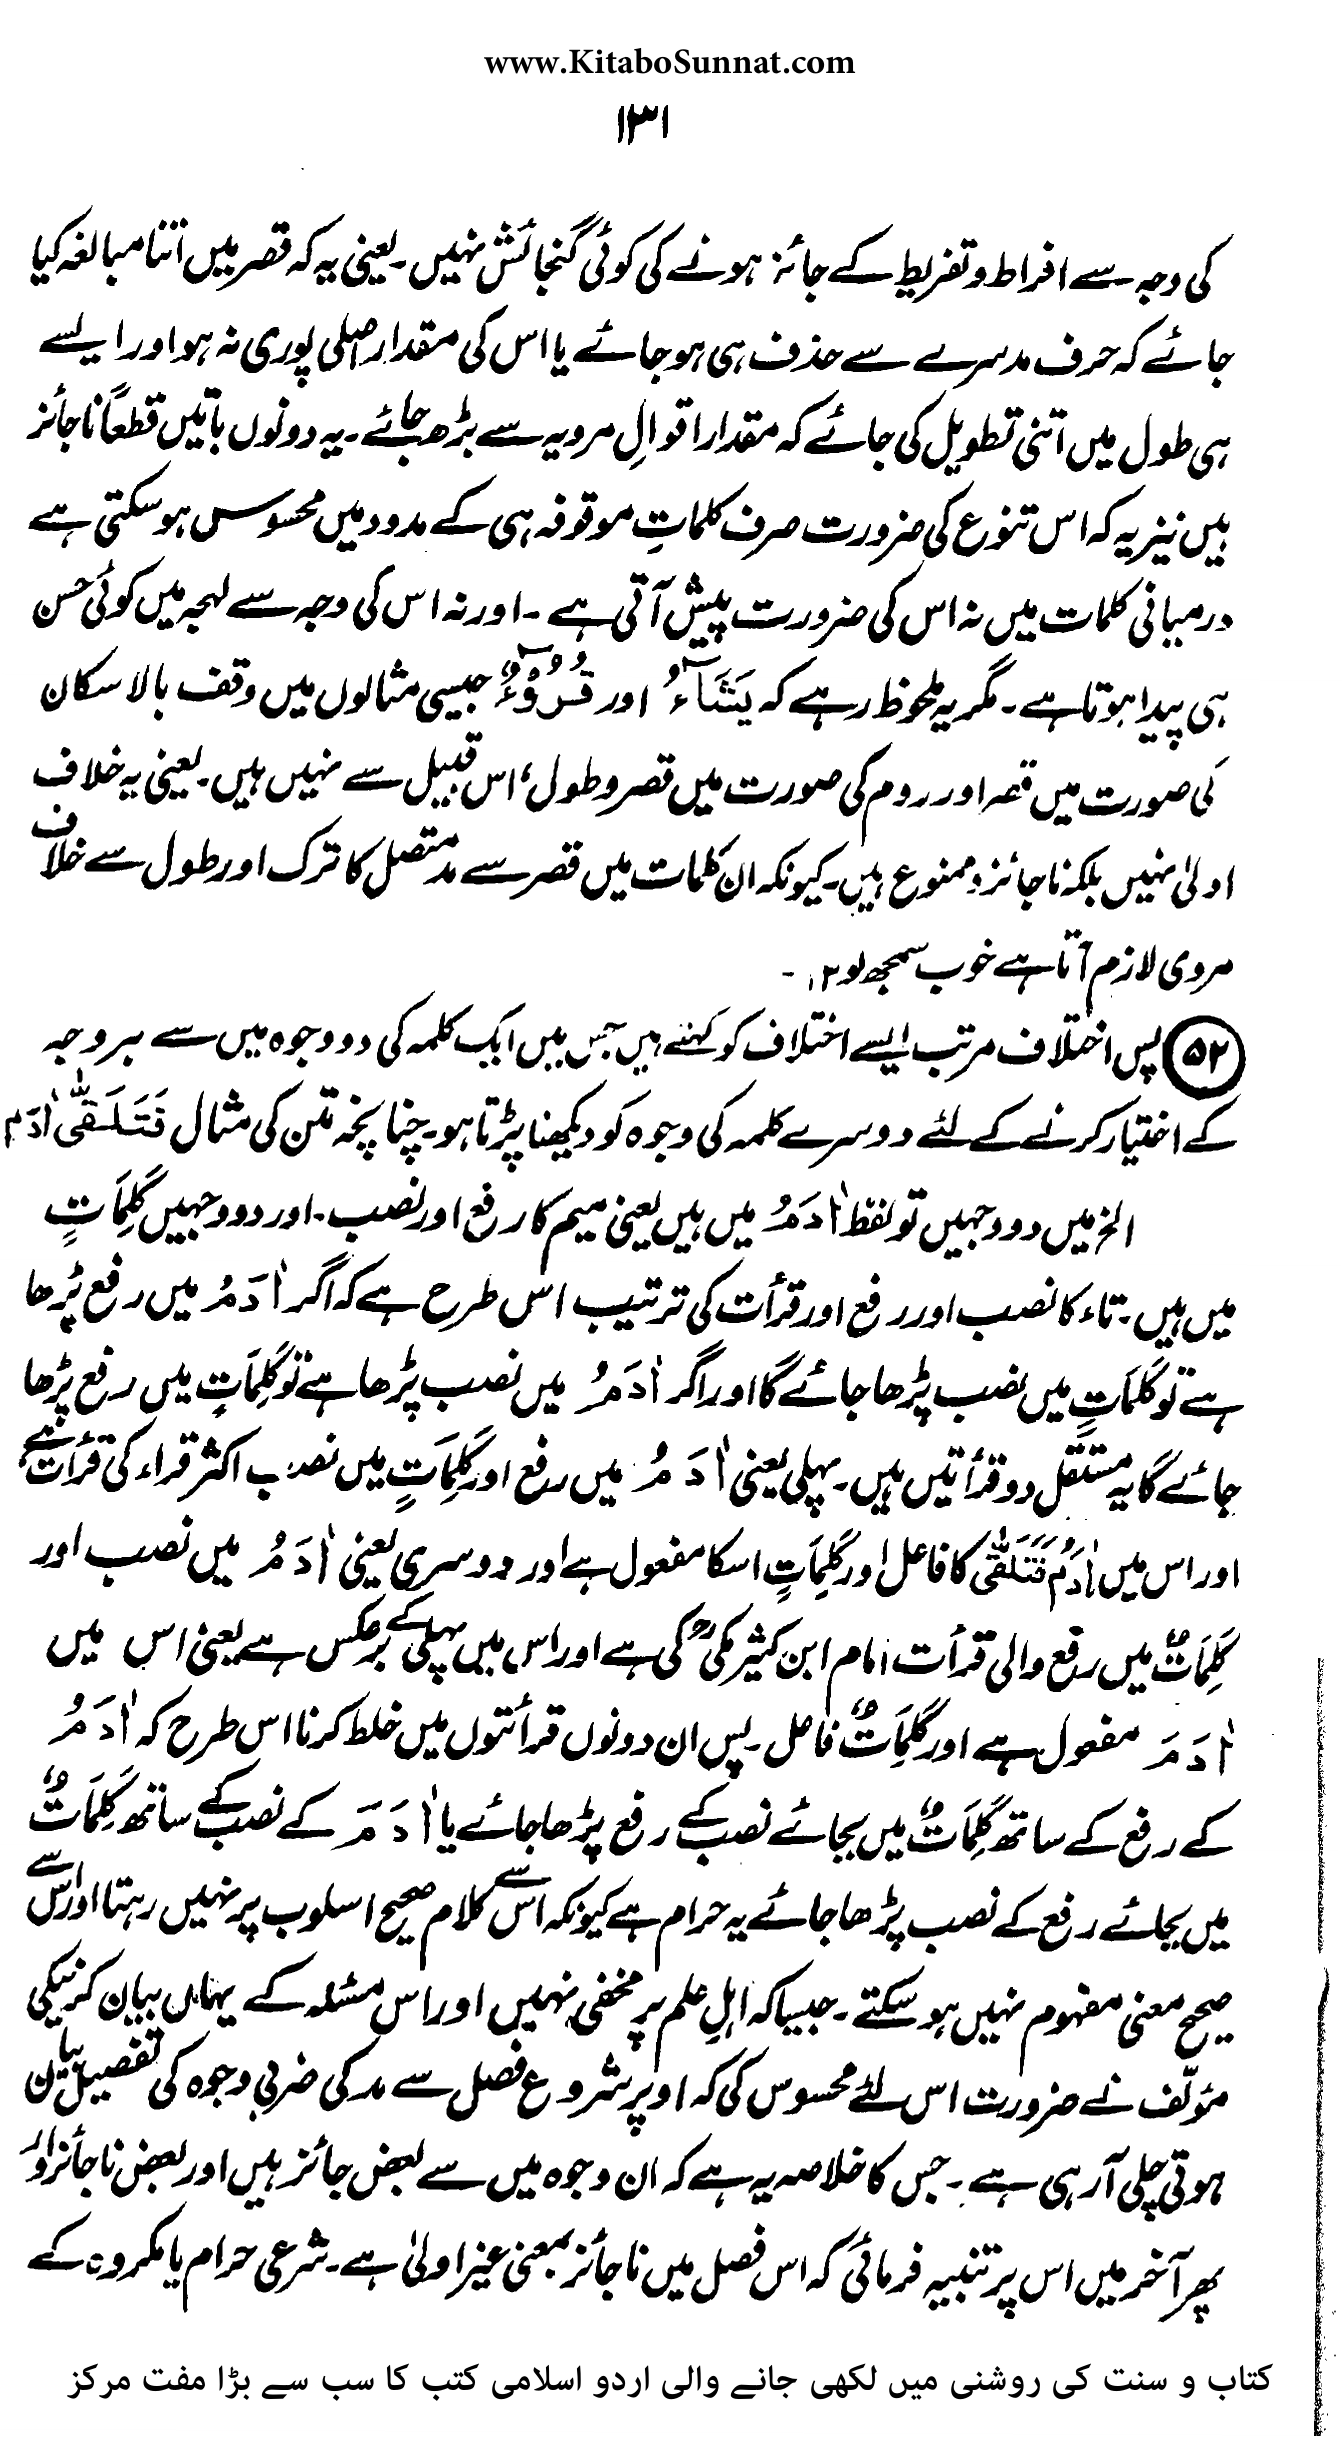 www.KitaboSunnat.com
۱۳۱
کی وجہ سے افراط و تفریط کے جائز ہونے کی کوئی گنجائش نہیں۔ یعنی یہ کہ قصر میں اتنا مبالغہ کیا
جائے کہ حرف مد سرے سے حذف ہی ہو جائے یا اس کی مقدار اصلی پوری نہ ہو اور ایسے
ہی طول میں اتنی تطویل کی جائے کہ مقدار اقوالِ مرویہ سے بڑھ جائے۔ یہ دونوں باتیں قطعاً ناجائز
ہیں نیز یہ کہ اس تنوع کی ضرورت صرف کلماتِ موقوفہ ہی کے مدود میں محسوس ہو سکتی ہے
درمیانی کلمات میں نہ اس کی ضرورت پیش آتی ہے۔ اور نہ اس کی وجہ سے لہجہ میں کوئی حسن
ہی پیدا ہوتا ہے۔ مگر یہ ملحوظ رہے کہ یَشَآءُ اور قُرُوْٓءٍ جیسی مثالوں میں وقف بالاسکان
کی صورت میں قصر اور روم کی صورت میں قصر و طول، اس قبیل سے نہیں ہیں۔ یعنی یہ خلاف
اولیٰ نہیں بلکہ ناجائز و ممنوع ہیں۔ کیونکہ ان کلمات میں قصر سے مد متصل کا ترک اور طول سے خلاف
مروی لازم آتا ہے خوب سمجھ لو ۱۲۔
(۵۲) پس اختلاف مرتب ایسے اختلاف کو کہتے ہیں جس میں ایک کلمہ کی دو وجوہ میں سے ہر وجہ
کے اختیار کرنے کے لئے دوسرے کلمہ کی وجوہ کو دیکھنا پڑتا ہو۔ چنانچہ متن کی مثال فَتَلَقّٰٓی اٰدَم
الخ میں دو وجہیں تو لفظ اٰدَمُ میں ہیں یعنی میم کا رفع اور نصب۔ اور دو وجہیں کَلِمَاتٍ
میں ہیں۔ تاء کا نصب اور رفع اور قرأت کی ترتیب اس طرح ہے کہ اگر اٰدَمُ میں رفع پڑھا
ہے تو کَلِمَاتٍ میں نصب پڑھا جائے گا اور اگر اٰدَمُ میں نصب پڑھا ہے تو کَلِمَاتٍ میں رفع پڑھا
جائے گا یہ مستقل دو قرأتیں ہیں۔ پہلی یعنی اٰدَمُ میں رفع اور کَلِمَاتٍ میں نصب اکثر قراء کی قرأت ہے
اور اس میں اٰدَمُ فَتَلَقّٰی کا فاعل اور کَلِمَاتٍ اسکا مفعول ہے اور دوسری یعنی اٰدَمُ میں نصب اور
کَلِمَاتٌ میں رفع والی قرأت امام ابن کثیر مکیؒ کی ہے اور اس میں پہلی کے برعکس ہے یعنی اس میں
اٰدَمَ مفعول ہے اور کَلِمَاتٌ فاعل۔ پس ان دونوں قرأتوں میں خلط کرنا اس طرح کہ اٰدَمُ
کے رفع کے ساتھ کَلِمَاتٌ میں بجائے نصب کے رفع پڑھا جائے یا اٰدَمَ کے نصب کے ساتھ کَلِمَاتٌ
میں بجائے رفع کے نصب پڑھا جائے یہ حرام ہے کیونکہ اس سے کلام صحیح اسلوب پر نہیں رہتا اور اس سے
صحیح معنی مفہوم نہیں ہو سکتے۔ جیسا کہ اہلِ علم پر مخفی نہیں اور اس مسئلہ کے یہاں بیان کرنیکی
مؤلّف نے ضرورت اس لئے محسوس کی کہ اوپر شروع فصل سے مد کی ضربی وجوہ کی تفصیل بیان
ہوتی چلی آ رہی ہے۔ جس کا خلاصہ یہ ہے کہ ان وجوہ میں سے بعض جائز ہیں اور بعض ناجائز اور
پھر آخر میں اس پر تنبیہ فرمائی کہ اس فصل میں ناجائز بمعنی غیر اولیٰ ہے۔ شرعی حرام یا مکروہ کے
کتاب و سنت کی روشنی میں لکھی جانے والی اردو اسلامی کتب کا سب سے بڑا مفت مرکز